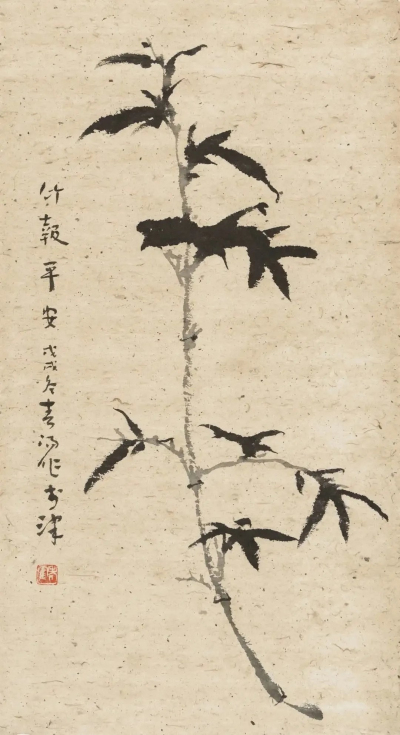 竹報平安戊戌冬青陽作於津